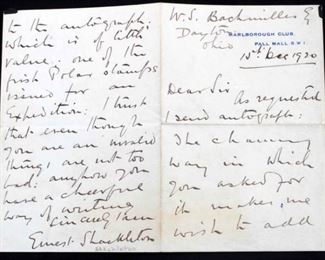 W.S. Bachmiller Esq
Dayton
Ohio
MARLBOROUGH CLUB,
PALL MALL. S.W.1.
15th Dec 1920
Dear Sir
As requested
I send autograph:
The charming
way in which
you asked for
it makes me
wish to add
to the autograph:
which is of little
value: one of the
first Polar stamps
issued for an
Expedition: I trust
that even though
you are an invalid
things are not too
bad: anyhow you
have a cheerful
way of writing
Sincerely
Ernest Shackleton
Shackleton